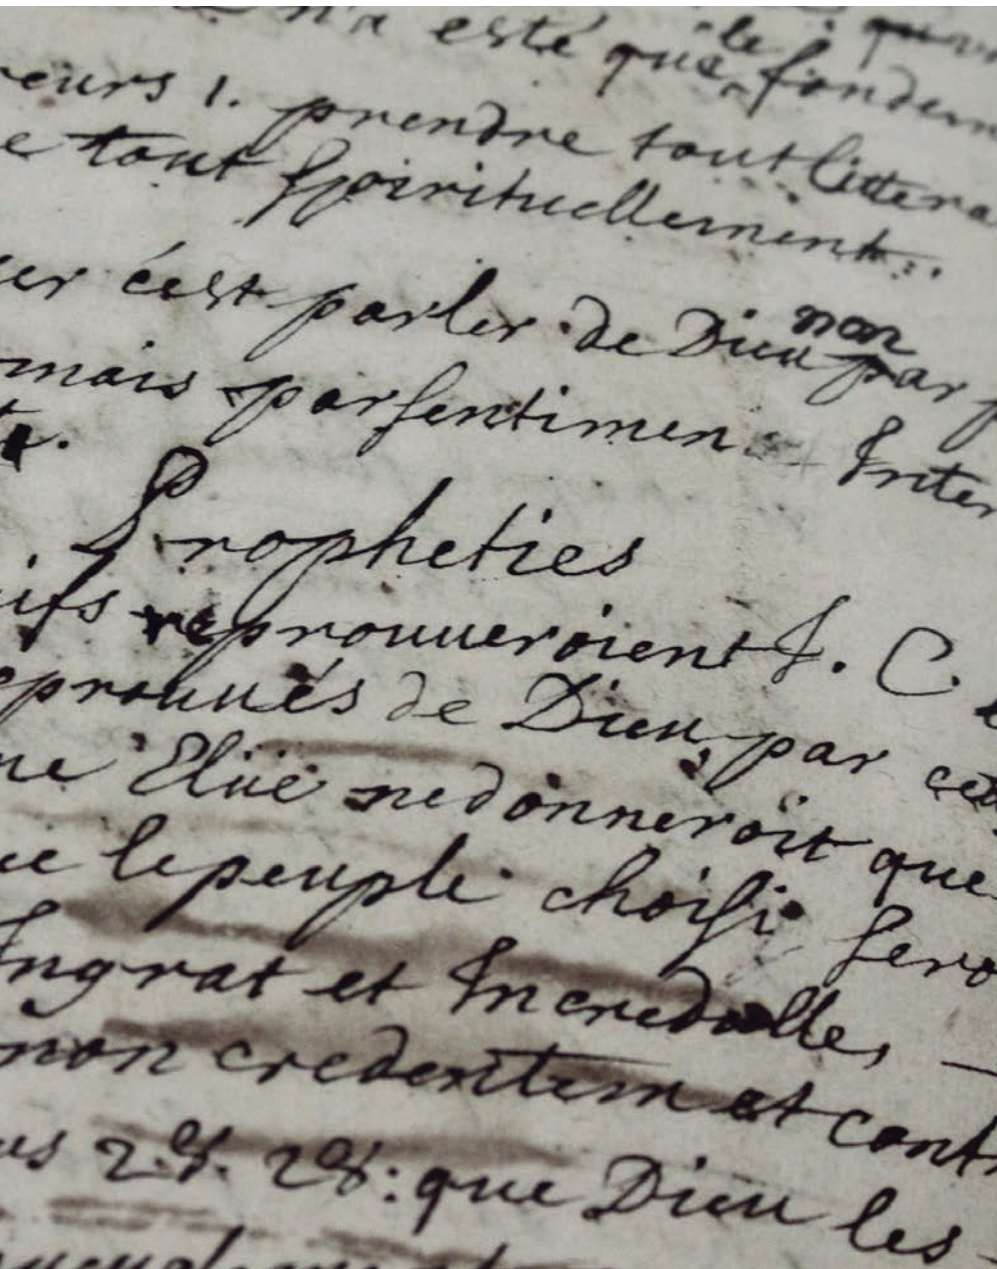 n'a esté que le fondem
reurs 1. prendre tout littera
e tout spirituellement.
er c'est parler de Dieu non par
mais par sentimen Inter
Propheties
uifs reprouueroient J. C.
eprouués de Dieu, par ce
ne Eluë ne donneroit que
ue le peuple choisi sero
Ingrat et Incredulle,
non credentem et cont
us 28. 28: que Dieu les